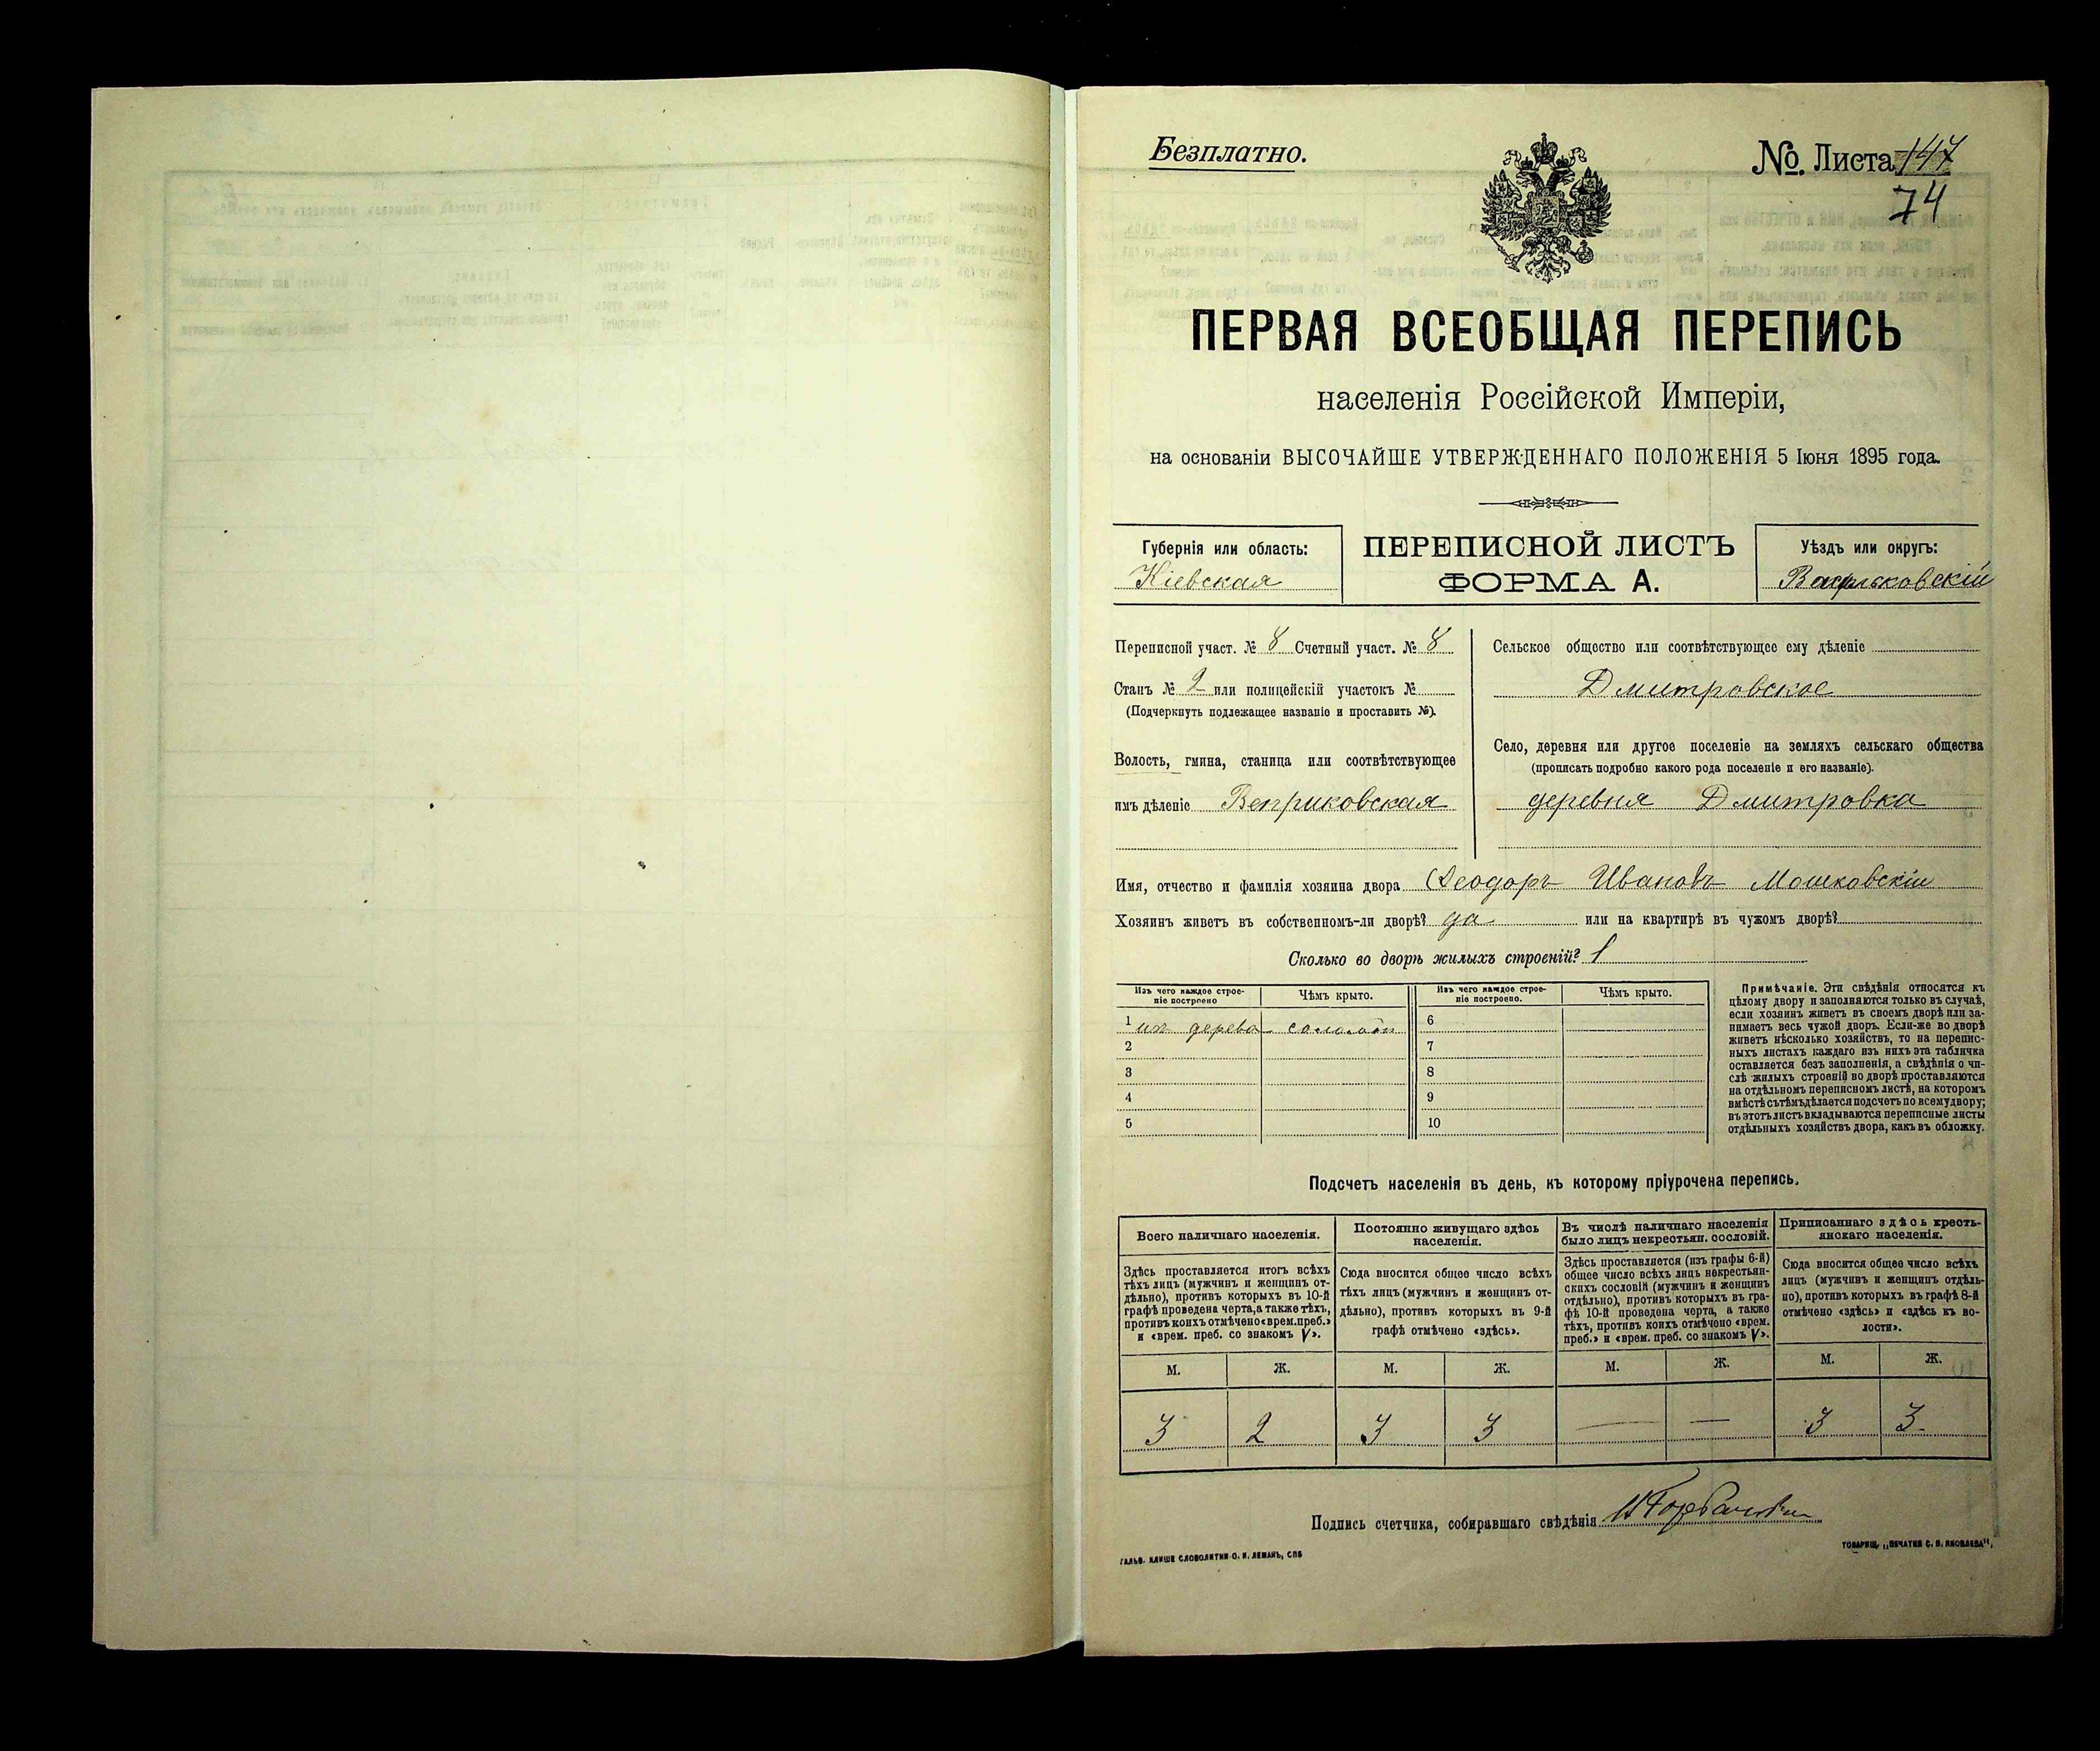 Безплатно.
№. Листа 147
74
ПЕРВАЯ ВСЕОБЩАЯ ПЕРЕПИСЬ
населенія Россійской Имперіи,
на основаніи ВЫСОЧАЙШЕ УТВЕРЖДЕННАГО ПОЛОЖЕНІЯ 5 Іюня 1895 года.
Губернія или область:
Кіевская
ПЕРЕПИСНОЙ ЛИСТЪ
ФОРМА А.
Уѣздъ или округъ:
Васильковскій
Переписной участ. № 8 Счетный участ. № 8
Станъ № 2 или полицейскій участокъ №
(Подчеркнуть подлежащее названіе и проставить №).
Волость, гмина, станица или соотвѣтствующее
имъ дѣленіе Веприковская
Сельское общество или соотвѣтствующее ему дѣленіе
Дмитровское
Село, деревня или другое поселеніе на земляхъ сельскаго общества
(прописать подробно какого рода поселеніе и его названіе).
деревня Дмитровка
Имя, отчество и фамилія хозяина двора Феодоръ Ивановъ Мошковскій
Хозяинъ живетъ въ собственномъ-ли дворѣ? да или на квартирѣ въ чужомъ дворѣ?
Сколько во дворѣ жилыхъ строеній? 1
Изъ чего каждое строе-
ніе построено
Чѣмъ крыто.
Изъ чего каждое строе-
ніе построено.
Чѣмъ крыто.
1 изъ дерева соломой 6
2 7
3 8
4 9
5 10
Примѣчаніе. Эти свѣдѣнія относятся къ
цѣлому двору и заполняются только въ случаѣ,
если хозяинъ живетъ въ своемъ дворѣ или за-
нимаетъ весь чужой дворъ. Если-же во дворѣ
живетъ нѣсколько хозяйствъ, то на перепис-
ныхъ листахъ каждаго изъ нихъ эта табличка
оставляется безъ заполненія, а свѣдѣнія о чи-
слѣ жилыхъ строеній во дворѣ проставляются
на отдѣльномъ переписномъ листѣ, на которомъ
вмѣстѣ съ тѣмъ дѣлается подсчетъ по всему двору;
въ этотъ листъ вкладываются переписные листы
отдѣльныхъ хозяйствъ двора, какъ въ обложку.
Подсчетъ населенія въ день, къ которому пріурочена перепись.
Всего наличнаго населенія.
Здѣсь проставляется итогъ всѣхъ
тѣхъ лицъ (мужчинъ и женщинъ от-
дѣльно), противъ которыхъ въ 10-й
графѣ проведена черта, а также тѣхъ,
противъ коихъ отмѣчено «врем. преб.»
и «врем. преб. со знакомъ V».
Постоянно живущаго здѣсь
населенія.
Сюда вносится общее число всѣхъ
тѣхъ лицъ (мужчинъ и женщинъ от-
дѣльно), противъ которыхъ въ 9-й
графѣ отмѣчено «здѣсь».
Въ числѣ наличнаго населенія
было лицъ некрестьян. сословій.
Здѣсь проставляется (изъ графы 6-й)
общее число всѣхъ лицъ некрестьян-
скихъ сословій (мужчинъ и женщинъ
отдѣльно), противъ которыхъ въ гра-
фѣ 10-й проведена черта, а также
тѣхъ, противъ коихъ отмѣчено «врем.
преб.» и «врем. преб. со знакомъ V».
Приписаннаго здѣсь кресть-
янскаго населенія.
Сюда вносится общее число всѣхъ
лицъ (мужчинъ и женщинъ отдѣль-
но), противъ которыхъ въ графѣ 8-й
отмѣчено «здѣсь» и «здѣсь къ во-
лости».
М. Ж. М. Ж. М. Ж. М. Ж.
3 2 3 3 — — 3 3
Подпись счетчика, собиравшаго свѣдѣнія
ГАЛЬВ. КЛИШЕ СЛОВОЛИТНИ О. И. ЛЕМАНЪ, СПБ
ТОВАРИЩ. „ПЕЧАТНЯ С. П. ЯКОВЛЕВА“,